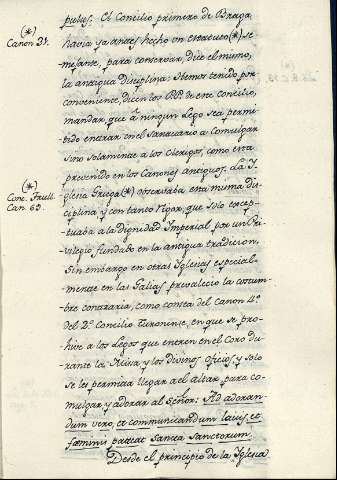 pulus. El Concilio primero de Braga
(*)
Canon 31.
havia ya antes hecho un estatuto (*) se-
mejante, para conservar, dice el mismo,
la antigua disciplina: Hemos tenido por
conveniente, dicen los PP. de este Concilio,
mandar, que à ningun Lego sea permi-
tido entrar en el Santuario a Comulgar
sino solamente a los Clerigos, como esta
prevenido en los Canones antiguos. La Y-
(*)
Conc. Trull.
Can. 69.
glesia Griega (*) observaba esta misma dis-
ciplina y con tanto rigor, que solo excep-
tuaba a la dignidad Imperial por un Pri-
vilegio fundado en la antigua tradicion.
Sin embargo en otras Yglesias especial-
mente en las Galias prevaleciò la costum-
bre contraria, como consta del canon 4º
del 2º Concilio Turonense, en que se pro-
hive a los Legos que entren en el Coro du-
rante la Misa y los divinos oficios, y solo
se les permita llegar a el altar para co-
mulgar, y adorar al Señor: Ad adoran-
dum vero, et communicandum laicis, et
fœminis pateat Sancta Sanctorum.
Desde el principio de la Yglesia